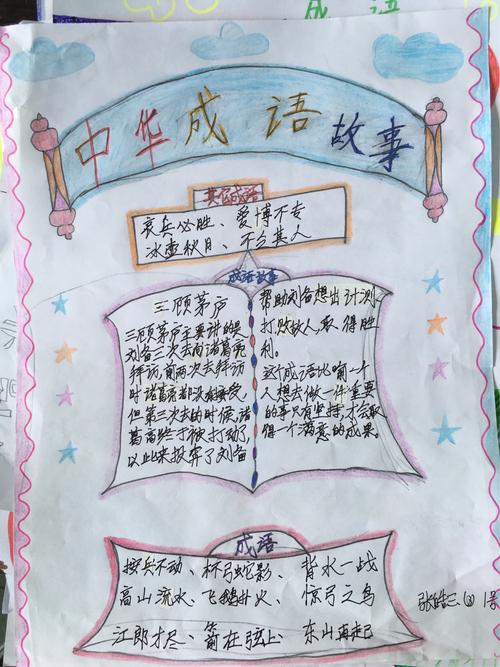 成语
中华成语故事
其他成语
哀兵必胜、爱博不专
冰壶秋月、不乏其人
成语故事
三顾茅庐
三顾茅庐主要讲的是
刘备三次去向诸葛亮
拜访,前两次去拜访
时诸葛亮都没有接受,
但第三次去的时候,诸
葛亮终于被打动了,
以此来投奔了刘备
帮助刘备想出计测,
打败敌人,取得胜
利。
这个成语比喻一个
人想去做一件重要
的事只有坚持,才会取
得一个满意的成果。
成语
按兵不动、杯弓蛇影、背水一战
高山流水、飞鹅扑火、惊弓之鸟
江郎才尽、箭在弦上、东山再起